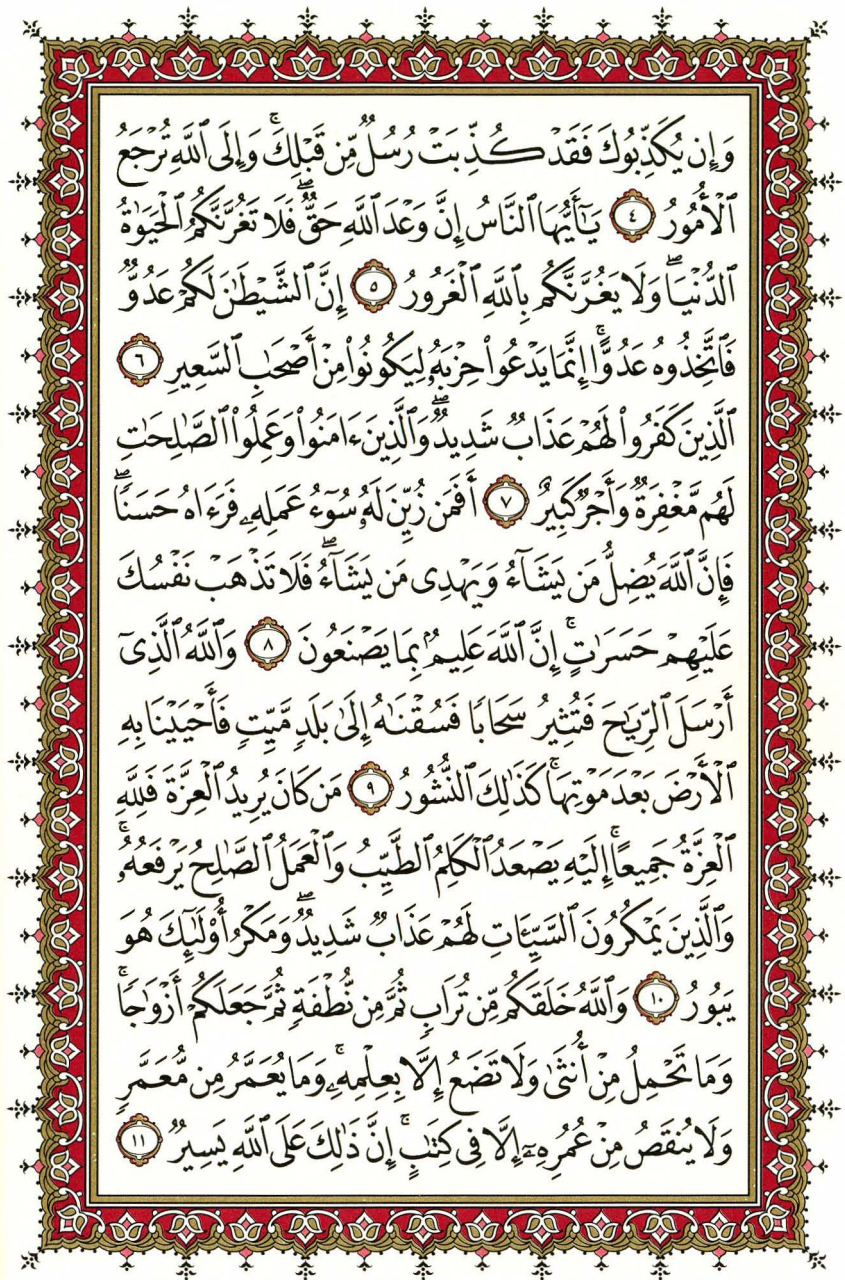 وَإِن يُكَذِّبُوكَ فَقَدْ كُذِّبَتْ رُسُلٌ مِّن قَبْلِكَ ۚ وَإِلَى ٱللَّهِ تُرْجَعُ
ٱلْأُمُورُ ٤ يَـٰٓأَيُّهَا ٱلنَّاسُ إِنَّ وَعْدَ ٱللَّهِ حَقٌّ ۖ فَلَا تَغُرَّنَّكُمُ ٱلْحَيَوٰةُ
ٱلدُّنْيَا ۖ وَلَا يَغُرَّنَّكُم بِٱللَّهِ ٱلْغَرُورُ ٥ إِنَّ ٱلشَّيْطَـٰنَ لَكُمْ عَدُوٌّ
فَٱتَّخِذُوهُ عَدُوًّا ۚ إِنَّمَا يَدْعُوا۟ حِزْبَهُۥ لِيَكُونُوا۟ مِنْ أَصْحَـٰبِ ٱلسَّعِيرِ ٦
ٱلَّذِينَ كَفَرُوا۟ لَهُمْ عَذَابٌ شَدِيدٌ ۖ وَٱلَّذِينَ ءَامَنُوا۟ وَعَمِلُوا۟ ٱلصَّـٰلِحَـٰتِ
لَهُم مَّغْفِرَةٌ وَأَجْرٌ كَبِيرٌ ٧ أَفَمَن زُيِّنَ لَهُۥ سُوٓءُ عَمَلِهِۦ فَرَءَاهُ حَسَنًا ۖ
فَإِنَّ ٱللَّهَ يُضِلُّ مَن يَشَآءُ وَيَهْدِى مَن يَشَآءُ ۖ فَلَا تَذْهَبْ نَفْسُكَ
عَلَيْهِمْ حَسَرَٰتٍ ۚ إِنَّ ٱللَّهَ عَلِيمٌۢ بِمَا يَصْنَعُونَ ٨ وَٱللَّهُ ٱلَّذِىٓ
أَرْسَلَ ٱلرِّيَـٰحَ فَتُثِيرُ سَحَابًا فَسُقْنَـٰهُ إِلَىٰ بَلَدٍ مَّيِّتٍ فَأَحْيَيْنَا بِهِ
ٱلْأَرْضَ بَعْدَ مَوْتِهَا ۚ كَذَٰلِكَ ٱلنُّشُورُ ٩ مَن كَانَ يُرِيدُ ٱلْعِزَّةَ فَلِلَّهِ
ٱلْعِزَّةُ جَمِيعًا ۚ إِلَيْهِ يَصْعَدُ ٱلْكَلِمُ ٱلطَّيِّبُ وَٱلْعَمَلُ ٱلصَّـٰلِحُ يَرْفَعُهُۥ ۚ
وَٱلَّذِينَ يَمْكُرُونَ ٱلسَّيِّـَٔاتِ لَهُمْ عَذَابٌ شَدِيدٌ ۖ وَمَكْرُ أُو۟لَـٰٓئِكَ هُوَ
يَبُورُ ١٠ وَٱللَّهُ خَلَقَكُم مِّن تُرَابٍ ثُمَّ مِن نُّطْفَةٍ ثُمَّ جَعَلَكُمْ أَزْوَٰجًا ۚ
وَمَا تَحْمِلُ مِنْ أُنثَىٰ وَلَا تَضَعُ إِلَّا بِعِلْمِهِۦ ۚ وَمَا يُعَمَّرُ مِن مُّعَمَّرٍ
وَلَا يُنقَصُ مِنْ عُمُرِهِۦٓ إِلَّا فِى كِتَـٰبٍ ۚ إِنَّ ذَٰلِكَ عَلَى ٱللَّهِ يَسِيرٌ ١١